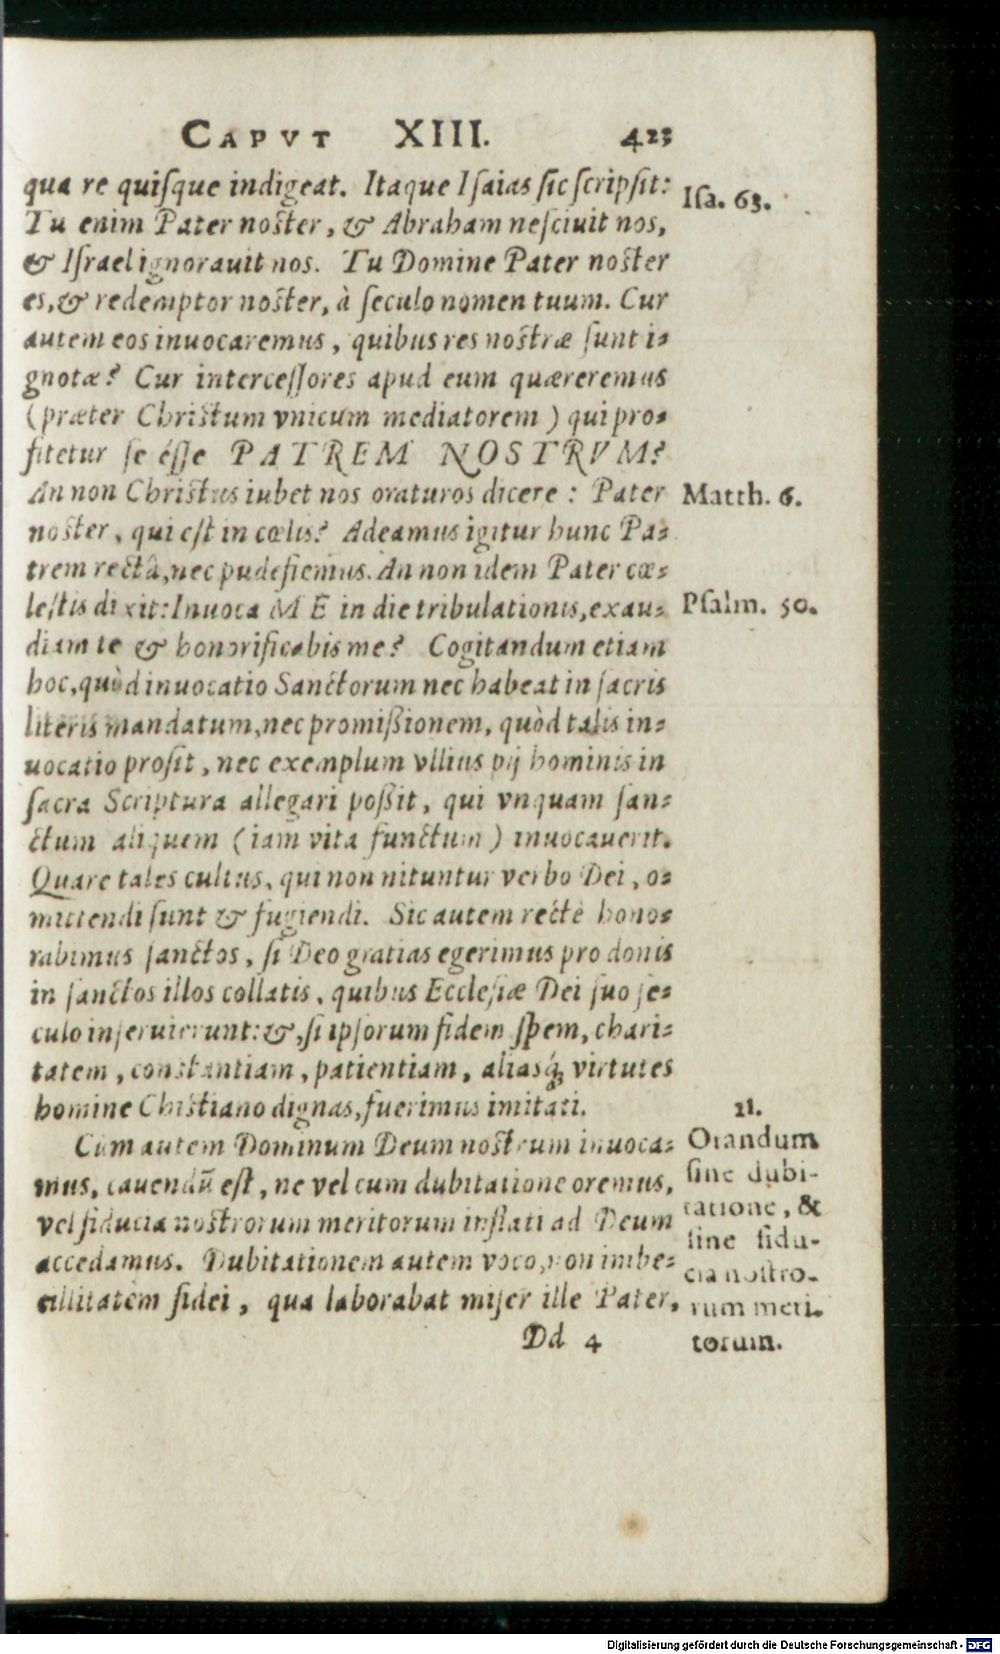 CAPVT XIII. 423
qua re quiſque indigeat. Itaque Iſaias ſic ſcripſit:
Iſa. 63.
Tu enim Pater noſter, & Abraham neſciuit nos,
& Iſrael ignorauit nos. Tu Domine Pater noſter
es, & redemptor noſter, à ſeculo nomen tuum. Cur
autem eos inuocaremus, quibus res noſtræ ſunt i-
gnotæ? Cur interceſſores apud eum quæreremus
(præter Chriſtum vnicum mediatorem) qui pro-
fitetur ſe éſſe PATREM NOSTRVM?
An non Chriſtus iubet nos oraturos dicere: Pater
Matth. 6.
noſter, qui eſt in cœlis? Adeamus igitur hunc Pa-
trem rectâ, nec pudefiemus. An non idem Pater cœ-
leſtis dixit: Inuoca ME in die tribulationis, exau-
Pſalm. 50.
diam te & honorificabis me? Cogitandum etiam
hoc, quòd inuocatio Sanctorum nec habeat in ſacris
literis mandatum, nec promiſſionem, quòd talis in-
uocatio proſit, nec exemplum vllius pij hominis in
ſacra Scriptura allegari poßit, qui vnquam ſan-
ctum aliquem (iam vita functum) inuocauerit.
Quare tales cultus, qui non nituntur verbo Dei, o-
mittendi ſunt & fugiendi. Sic autem rectè hono-
rabimus ſanctos, ſi Deo gratias egerimus pro donis
in ſanctos illos collatis, quibus Eccleſiæ Dei ſuo ſe-
culo inſeruierunt: &, ſi ipſorum fidem ſpem, chari-
tatem, conſtantiam, patientiam, aliasq́; virtutes
homine Chiſtiano dignas, fuerimus imitati.
Cum autem Dominum Deum noſtrum inuoca-
mus, cauendū eſt, ne vel cum dubitatione oremus,
vel fiducia noſtrorum meritorum inflati ad Deum
accedamus. Dubitationem autem voco, non imbe-
cillitatem fidei, qua laborabat miſer ille Pater,
21.
Orandum
ſine dubi-
tatione, &
ſine fidu-
cia noſtro-
rum meri-
torum.
Dd 4
Digitalisierung gefördert durch die Deutsche Forschungsgemeinschaft - DFG